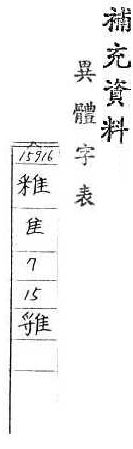 補充資料
異體字表
15916
隹
7
15